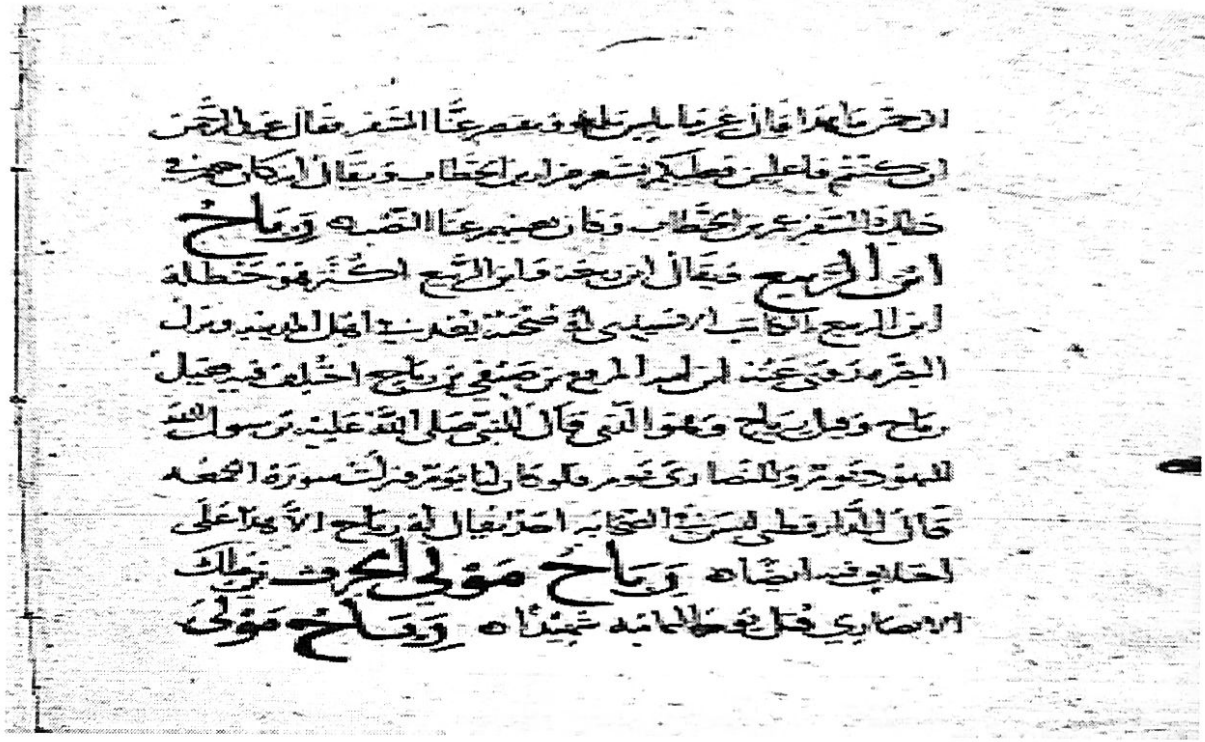 الرحمن ما هذا فقال غير ما بأس نلهو ونقصر عنا السفر فقال عبد الرحمن
ان كنتم فاعلين فعليكم بشعر ضرار بن الخطاب ويقال انه كان معهم في
ذلك السفر عمر بن الخطاب وكان يغنيهم غنا النصب رباح
ابن الربيع ويقال ابن ربيعة وابن الربيع اكثر هو اخو حنظلة
ابن الربيع الكاتب الاسيدي له صحبة يعد في اهل المدينة ونزل
البصرة روى عنه ابن ابنه المرقع بن صيفي بن رباح اختلف فيه فقيل
رباح وقيل رياح وهو الذي قال للنبي صلى الله عليه يرسول الله
لليهود يوم وللنصارى يوم فلو كان لنا يوم فنزلت سورة الجمعه
قال الدارقطني ليس في الصحابه احد يقال له رياح الا هذا على
اختلاف فيه ايضا رباح مولى الحرث بن مالك
الانصاري قتل يوم اليمامه شهيدا رباح مولى